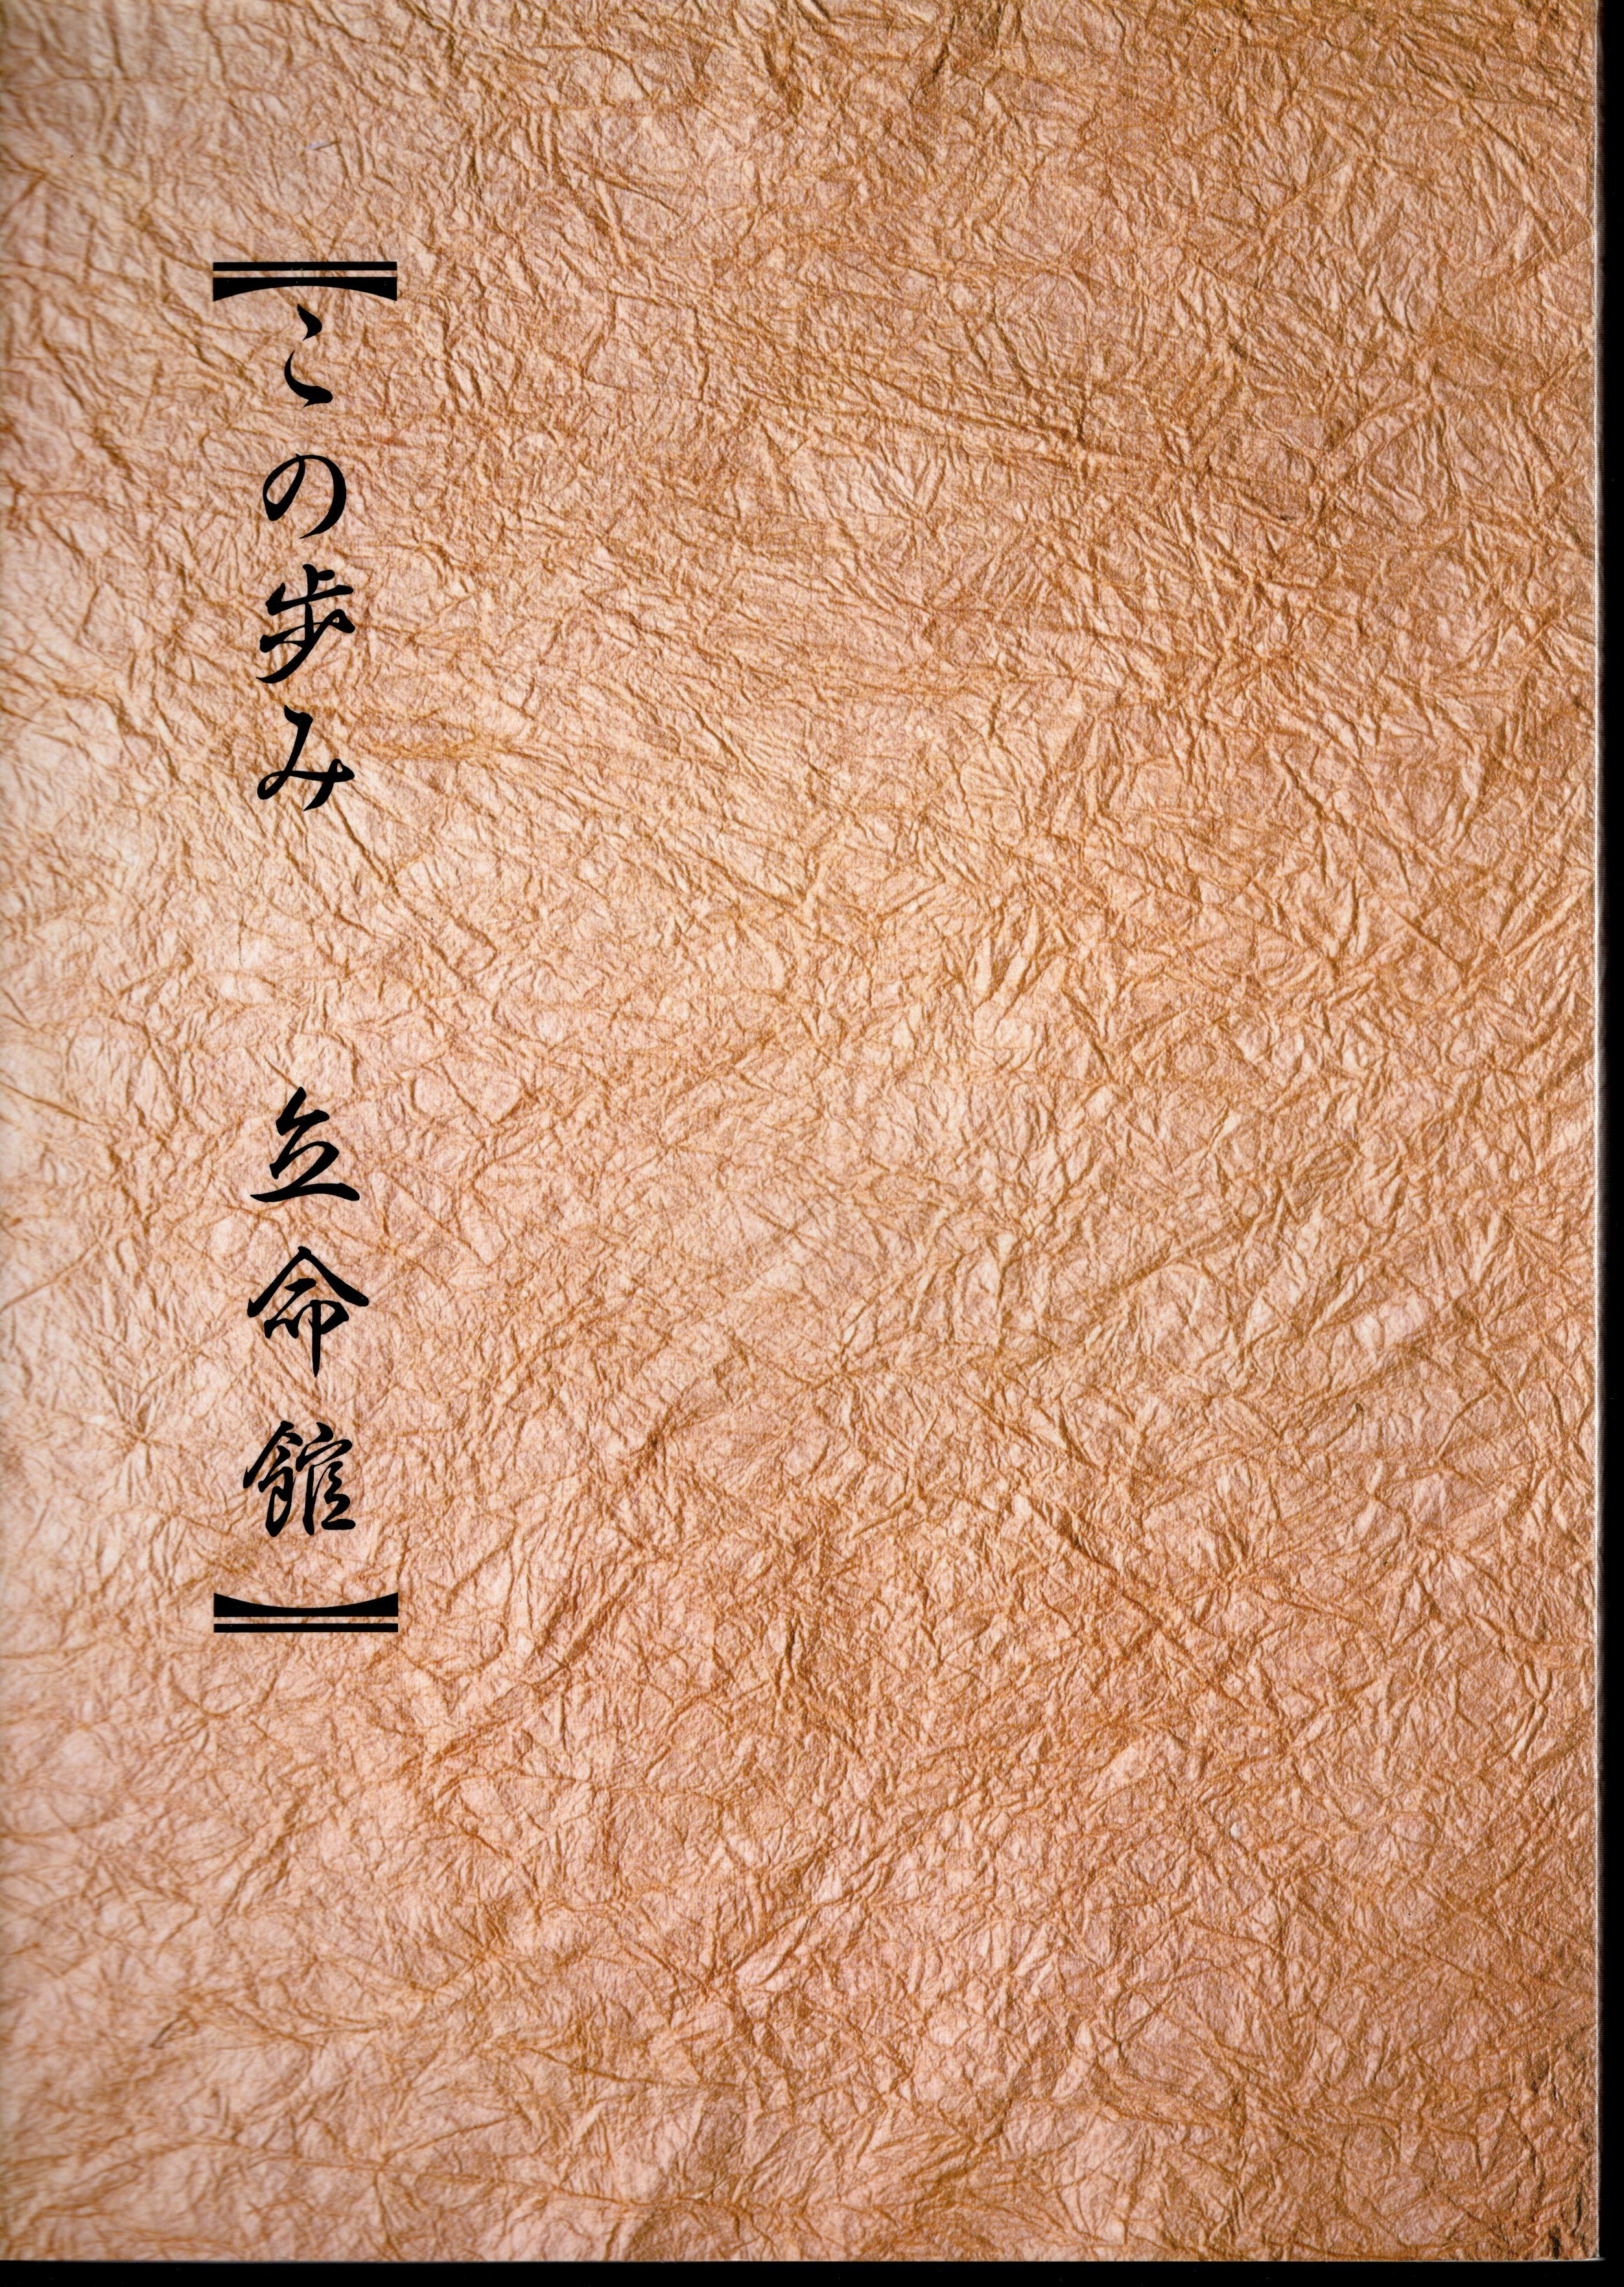 【この歩み　立命館】